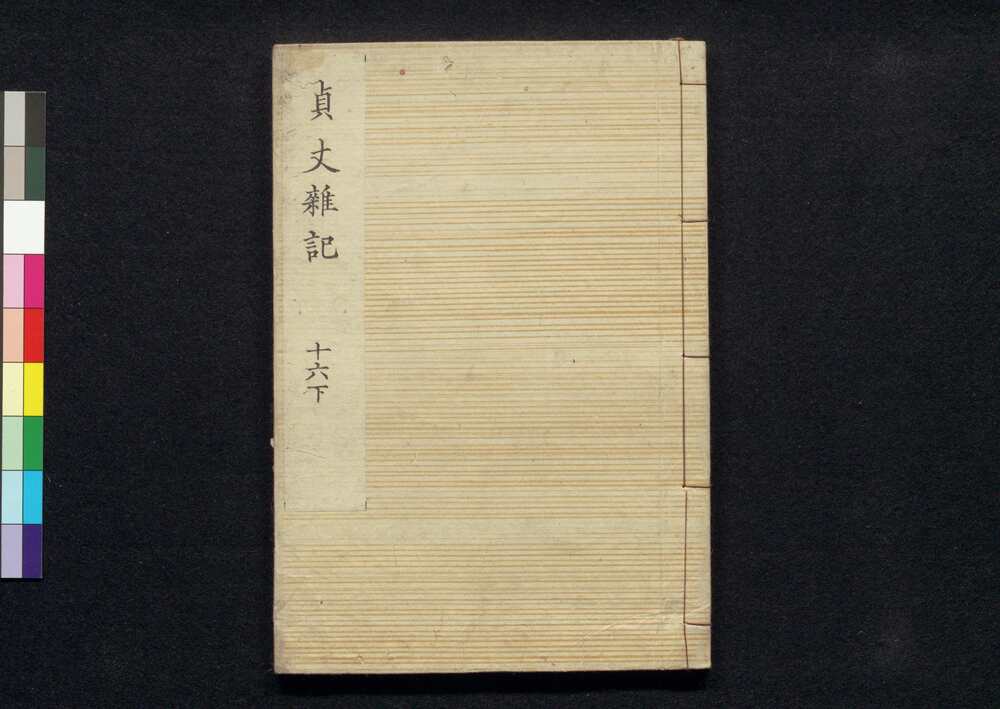 貞丈雜記 十六下